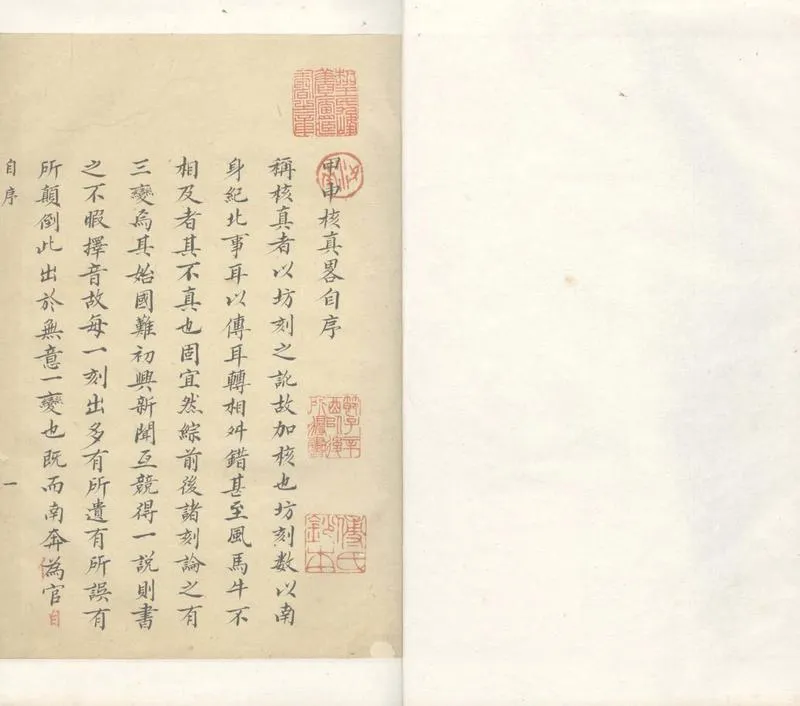 甲申核真畧自序
稱核真者以坊刻之訛故加核也坊刻数以南
身紀北事耳以傳耳轉相舛錯甚至風馬牛不
相及者其不真也固宜然綜前後諸刻論之有
三變焉其始國難初興新聞互競得一説則書
之不暇擇音故每一刻出多有所遺有所誤有
所顛倒此出於無意一變也既而南奔偽官自
自序 一